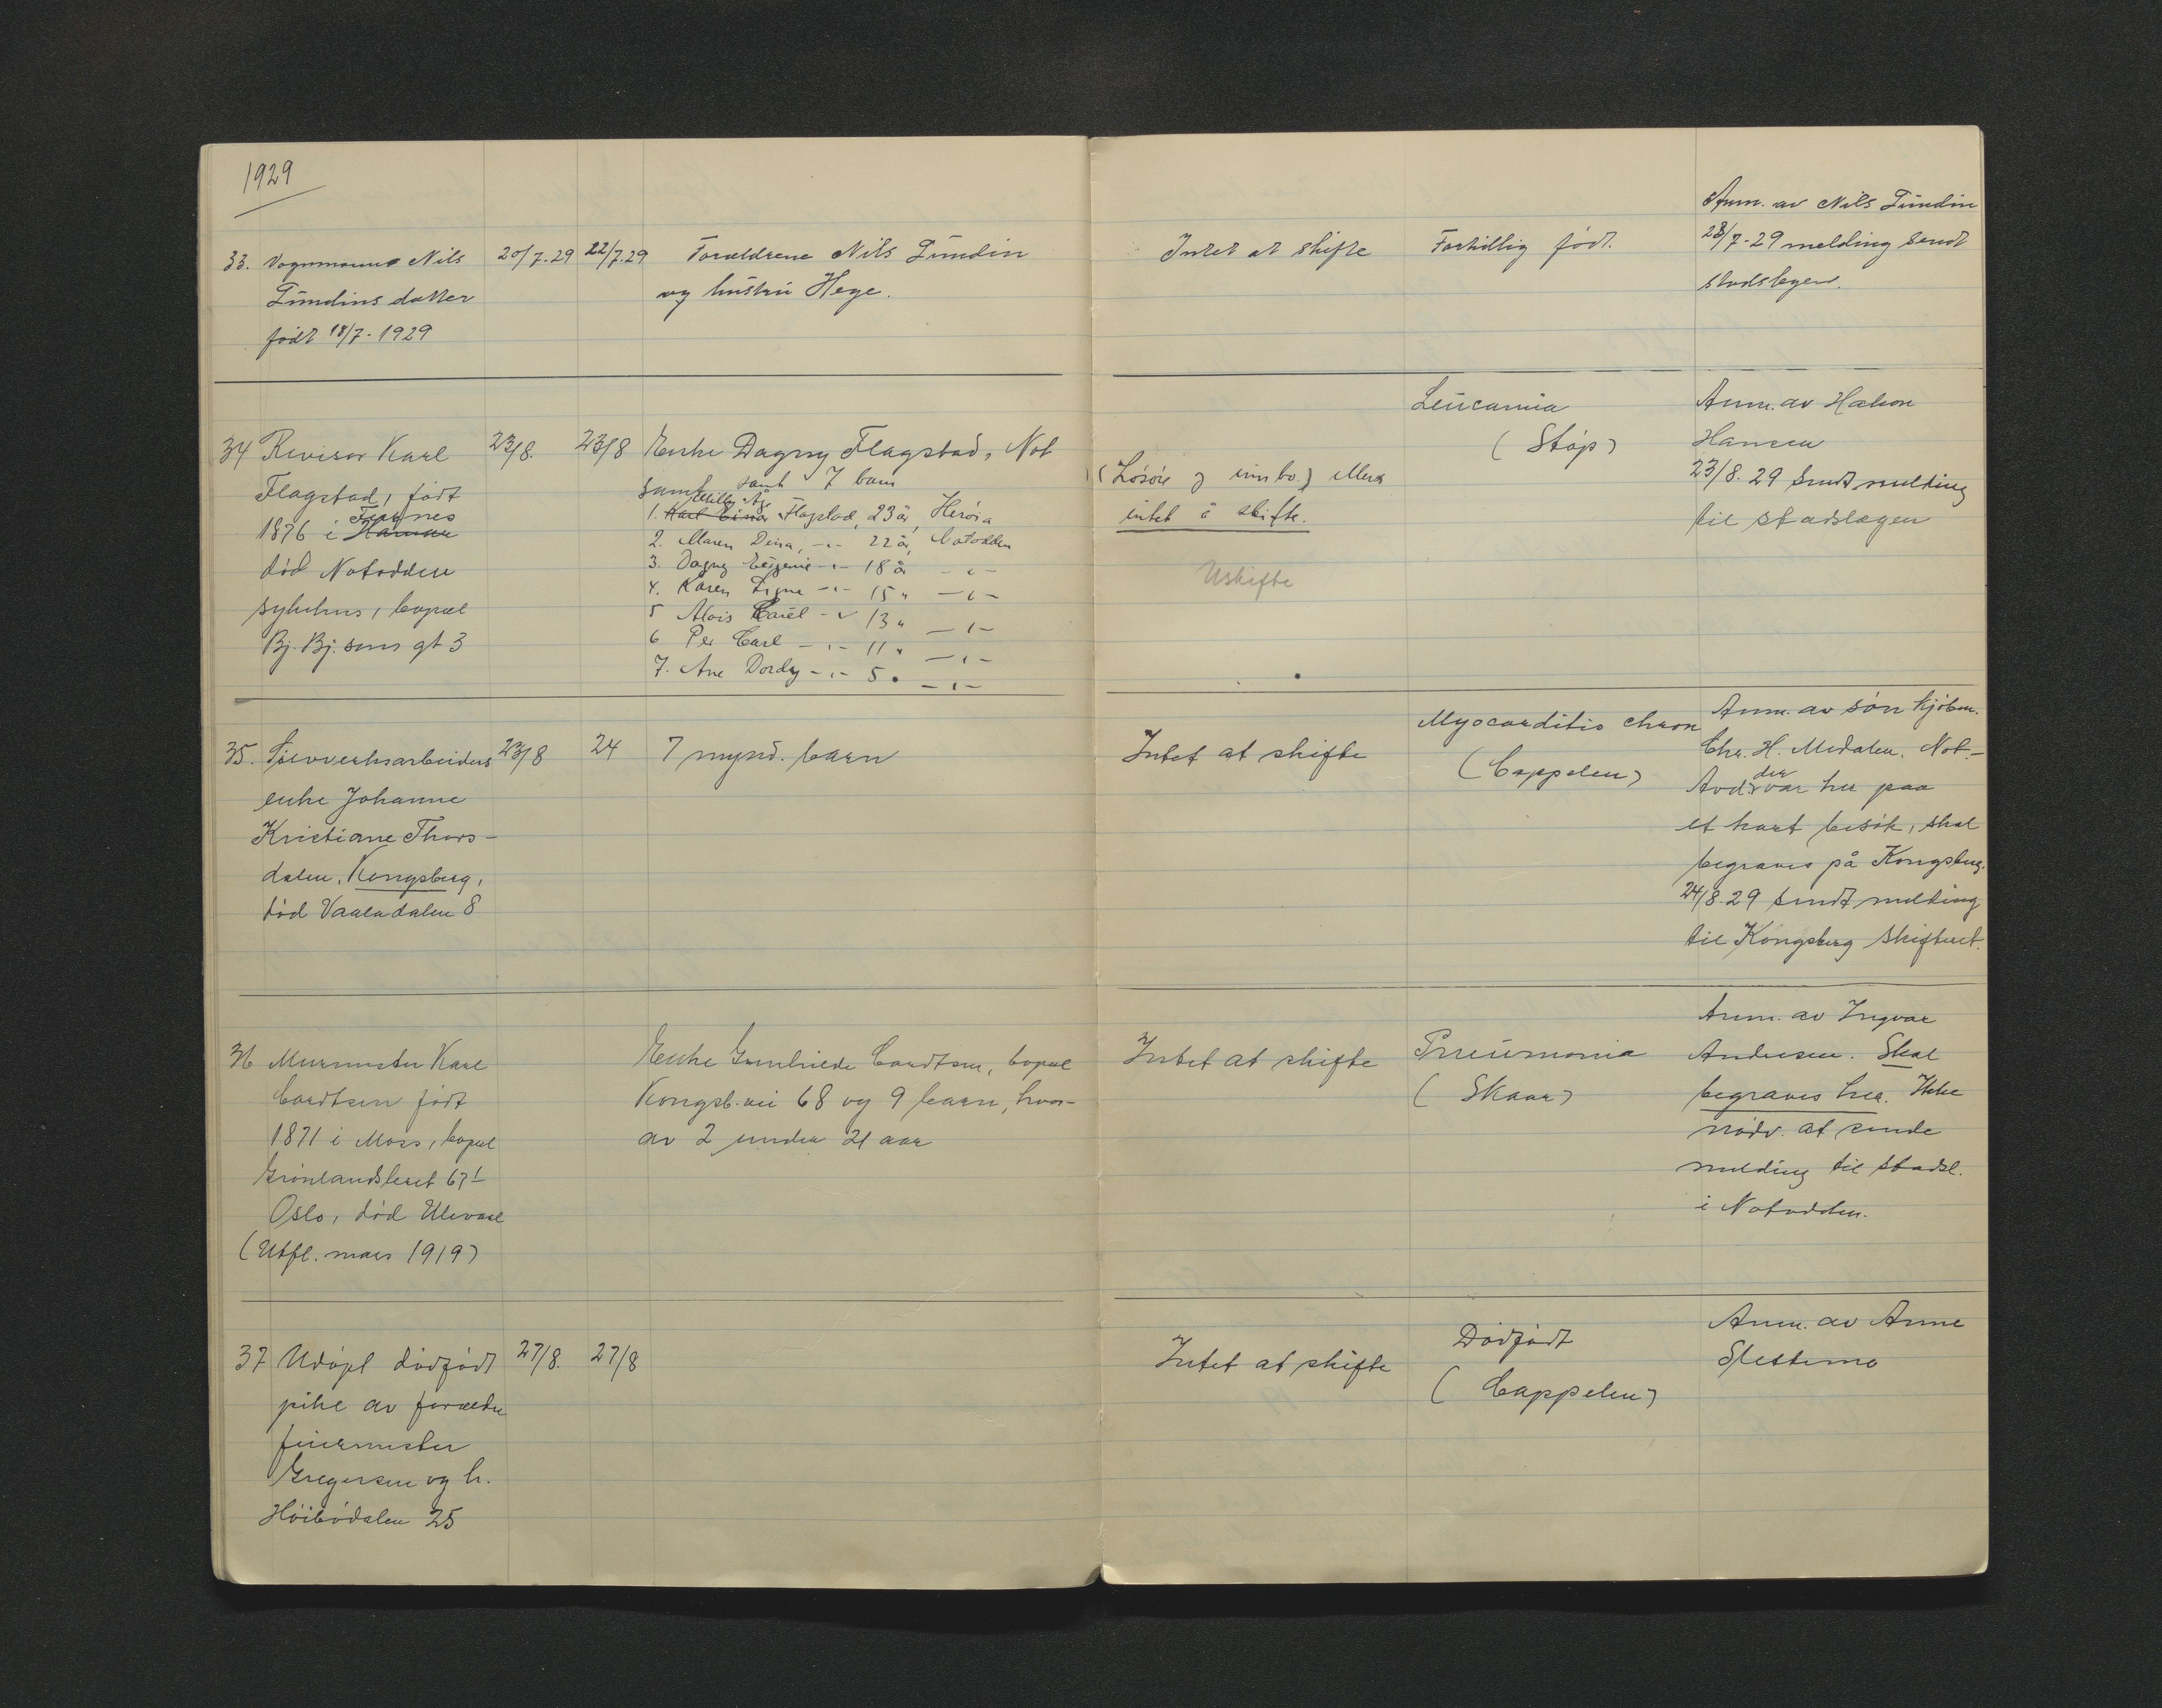 1929
33. Vognmann Nils
Lundins datter
født 18/7-1929
20/7.29
22/7.29
Foreldrene Nils Lundin
og hustru Hege.
Intet at skifte
Fortidlig født.
Anm. av Nils Lundin
23/7-29 melding sendt
stadslegen.
34 Revisor Karl
Flagstad, født
1876 i Furnes
død Notodden
sykehus, bopæl
Bj. Bj. sons gt 3
23/8.
23/8
Enke Dagny Flagstad, Not
samt 7 barn
1. Willy Åge Flagstad, 23 år, Herøia
2. Maren Dina, -"- 22 år, Notodden
3. Dagny Eugenie -"- 18 år -"-
4. Karen Signe -"- 15 " -"-
5 Alois Emil -"- 13 " -"-
6 Per Carl -"- 11 " -"-
7. Ane Dordy -"- 5 " -"-
(Løsøre og innbo.) Ellers
intet å skifte.
Uskifte
Leucamia
(Støp)
Anm. av Hakon
Hansen
23/8.29 Sendt melding
til stadslægen
35. Sølvverksarbeiders
enke Johanne
Kristiane Thors-
dalen, Kongsberg,
død Vaaladalen 8
23/8
24
7 mynd. barn
Intet at skifte
Myocarditis chron
(Cappelen)
Anm. av søn kjøbm.
Chr. H. Medalen. Not.-
Avdøde var her paa
et kort besøk, skal
begraves på Kongsberg.
24/8.29 sendt melding
til Kongsberg Skifteret.
36 Murmester Karl
Cordtsen født
1871 i Moss, bopæl
Grønlandsleret 67 I
Oslo, død Ulevaal
(Utfl. mars 1919)
Enke Gunhilde Cordtsen, bopæl
Kongsb.vei 68 og 9 barn, hvor-
av 2 under 21 aar
Intet at skifte
Pneumonia
(Skaar)
Anm. av Ingvar
Andersen. Skal
begraves her. Ikke
nødv. at sende
melding til stadsl.
i Notodden.
37 Udøpt dødfødt
pike av forældre
feiermester
Gregersen og h.
Høibødalen 25
27/8.
27/8
Intet at skifte
Dødfødt
(Cappelen)
Anm. av Anne
Slettemo